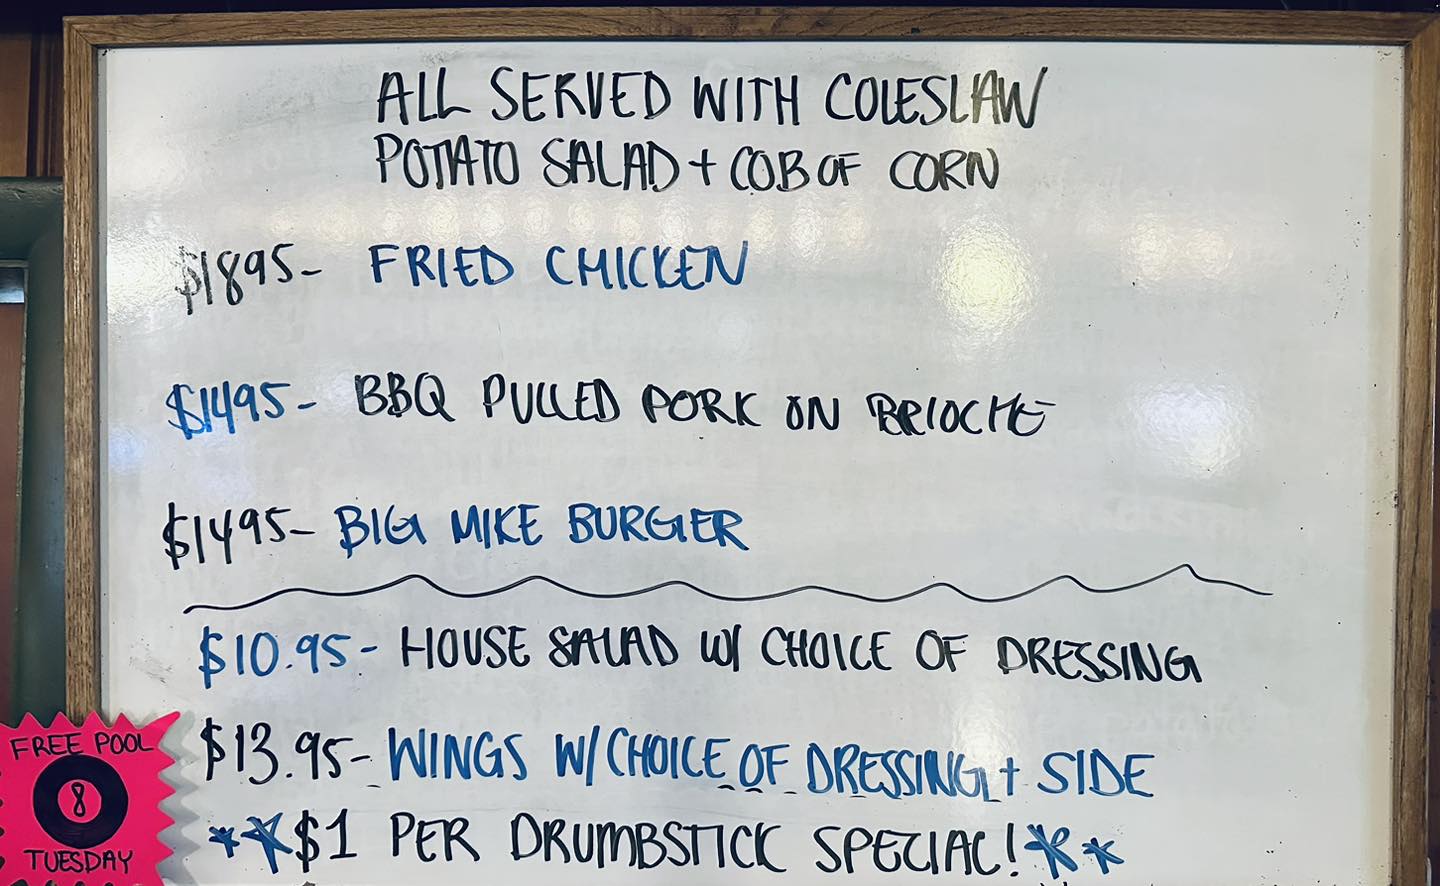 ALL SERVED WITH COLESLAW
POTATO SALAD + COB OF CORN
$1895- FRIED CHICKEN
$1495- BBQ PULLED PORK ON BRIOCHE
$1495- BIG MIKE BURGER
$10.95- HOUSE SALAD W/ CHOICE OF DRESSING
$13.95- WINGS W/ CHOICE OF DRESSING + SIDE
**$1 PER DRUMBSTICK SPECIAL!**
FREE POOL
8
TUESDAY